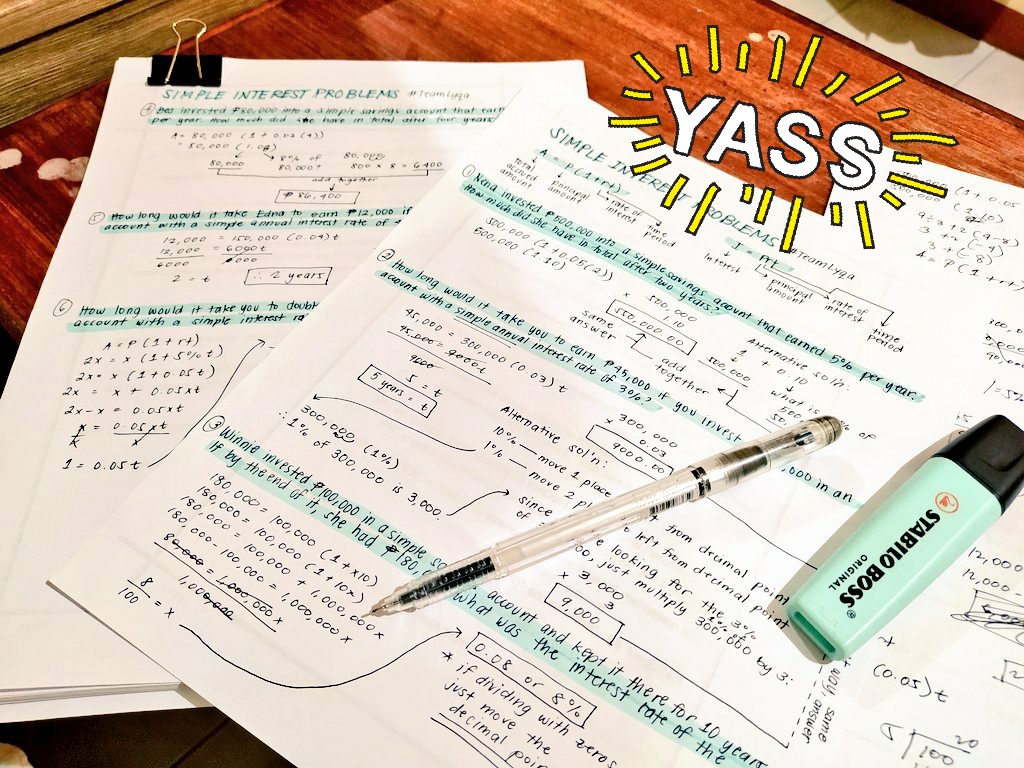 YASS
SIMPLE INTEREST PROBLEMS #TeamLyqa
④ Bea invested ₱80,000 into a simple savings account that earn
per year. How much did she have in total after four years
A = 80,000 (1 + 0.02(4))
= 80,000 (1.08)
80,000
8% of
80,000 =
80,000
800 × 8 = 6400
add together
₱86,400
⑤ How long would it take Edna to earn ₱12,000 if
account with a simple annual interest rate of
12,000 = 150,000 (0.04)t
12,000 = 6000t
6000 6000
2 = t
∴ 2 years
⑥ How long would it take you to doubl
account with a simple interest ra
A = P(1+rt)
2x = x(1+5%t)
2x = x(1+0.05t)
2x = x + 0.05xt
2x-x = 0.05xt
x = 0.05xt
x x
1 = 0.05t
SIMPLE INTEREST PROBLEMS #TeamLyqa
A = P(1+rt)
total
amount
principal
amount
rate of
interest
time
period
I = Prt
Interest
principal
amount
rate of
interest
time
period
① Nena invested ₱500,000 into a simple savings account that earned 5% per year.
How much did she have in total after two years?
500,000 (1+0.05(2))
500,000 (1.10)
× 500,000
1.10
550,000.00
same
answer
add
together
Alternative sol'n:
1 + 0.10
500,000
what is
② How long would it take you to earn ₱45,000 if you invest
,000 in an
account with a simple annual interest rate of 3%?
45,000 = 300,000 (0.03)t
45,000 = 9000t
9000
5 = t
5 years = t
× 300,000
0.03
9000.00
Alternative sol'n:
10% — move 1 place
1% — move 2 p
from decimal point
left from decimal point
300,000 (1%)
∴ 1% of 300,000 is 3,000.
since
of
e looking for the 3%
just multiply 300,000 by 3:
× 3,000
3
9,000
way, same
answer
③ Winnie invested ₱100,000 in a simple
account and kept it there for 10 years
If by the end of it, she had ₱180,
what was the interest rate of the
180,000 = 100,000 (1+x10)
180,000 = 100,000 (1+10x)
180,000 = 100,000 + 1,000,000x
180,000-100,000 = 1,000,000x
80,000 = 1,000,000x
1,000,000
8
100 = x
0.08 or 8%
* if dividing with zeros
just move the
decimal point
STABILO BOSS
ORIGINAL
®
12,000
12,000-
(0.05)t
20
5 100